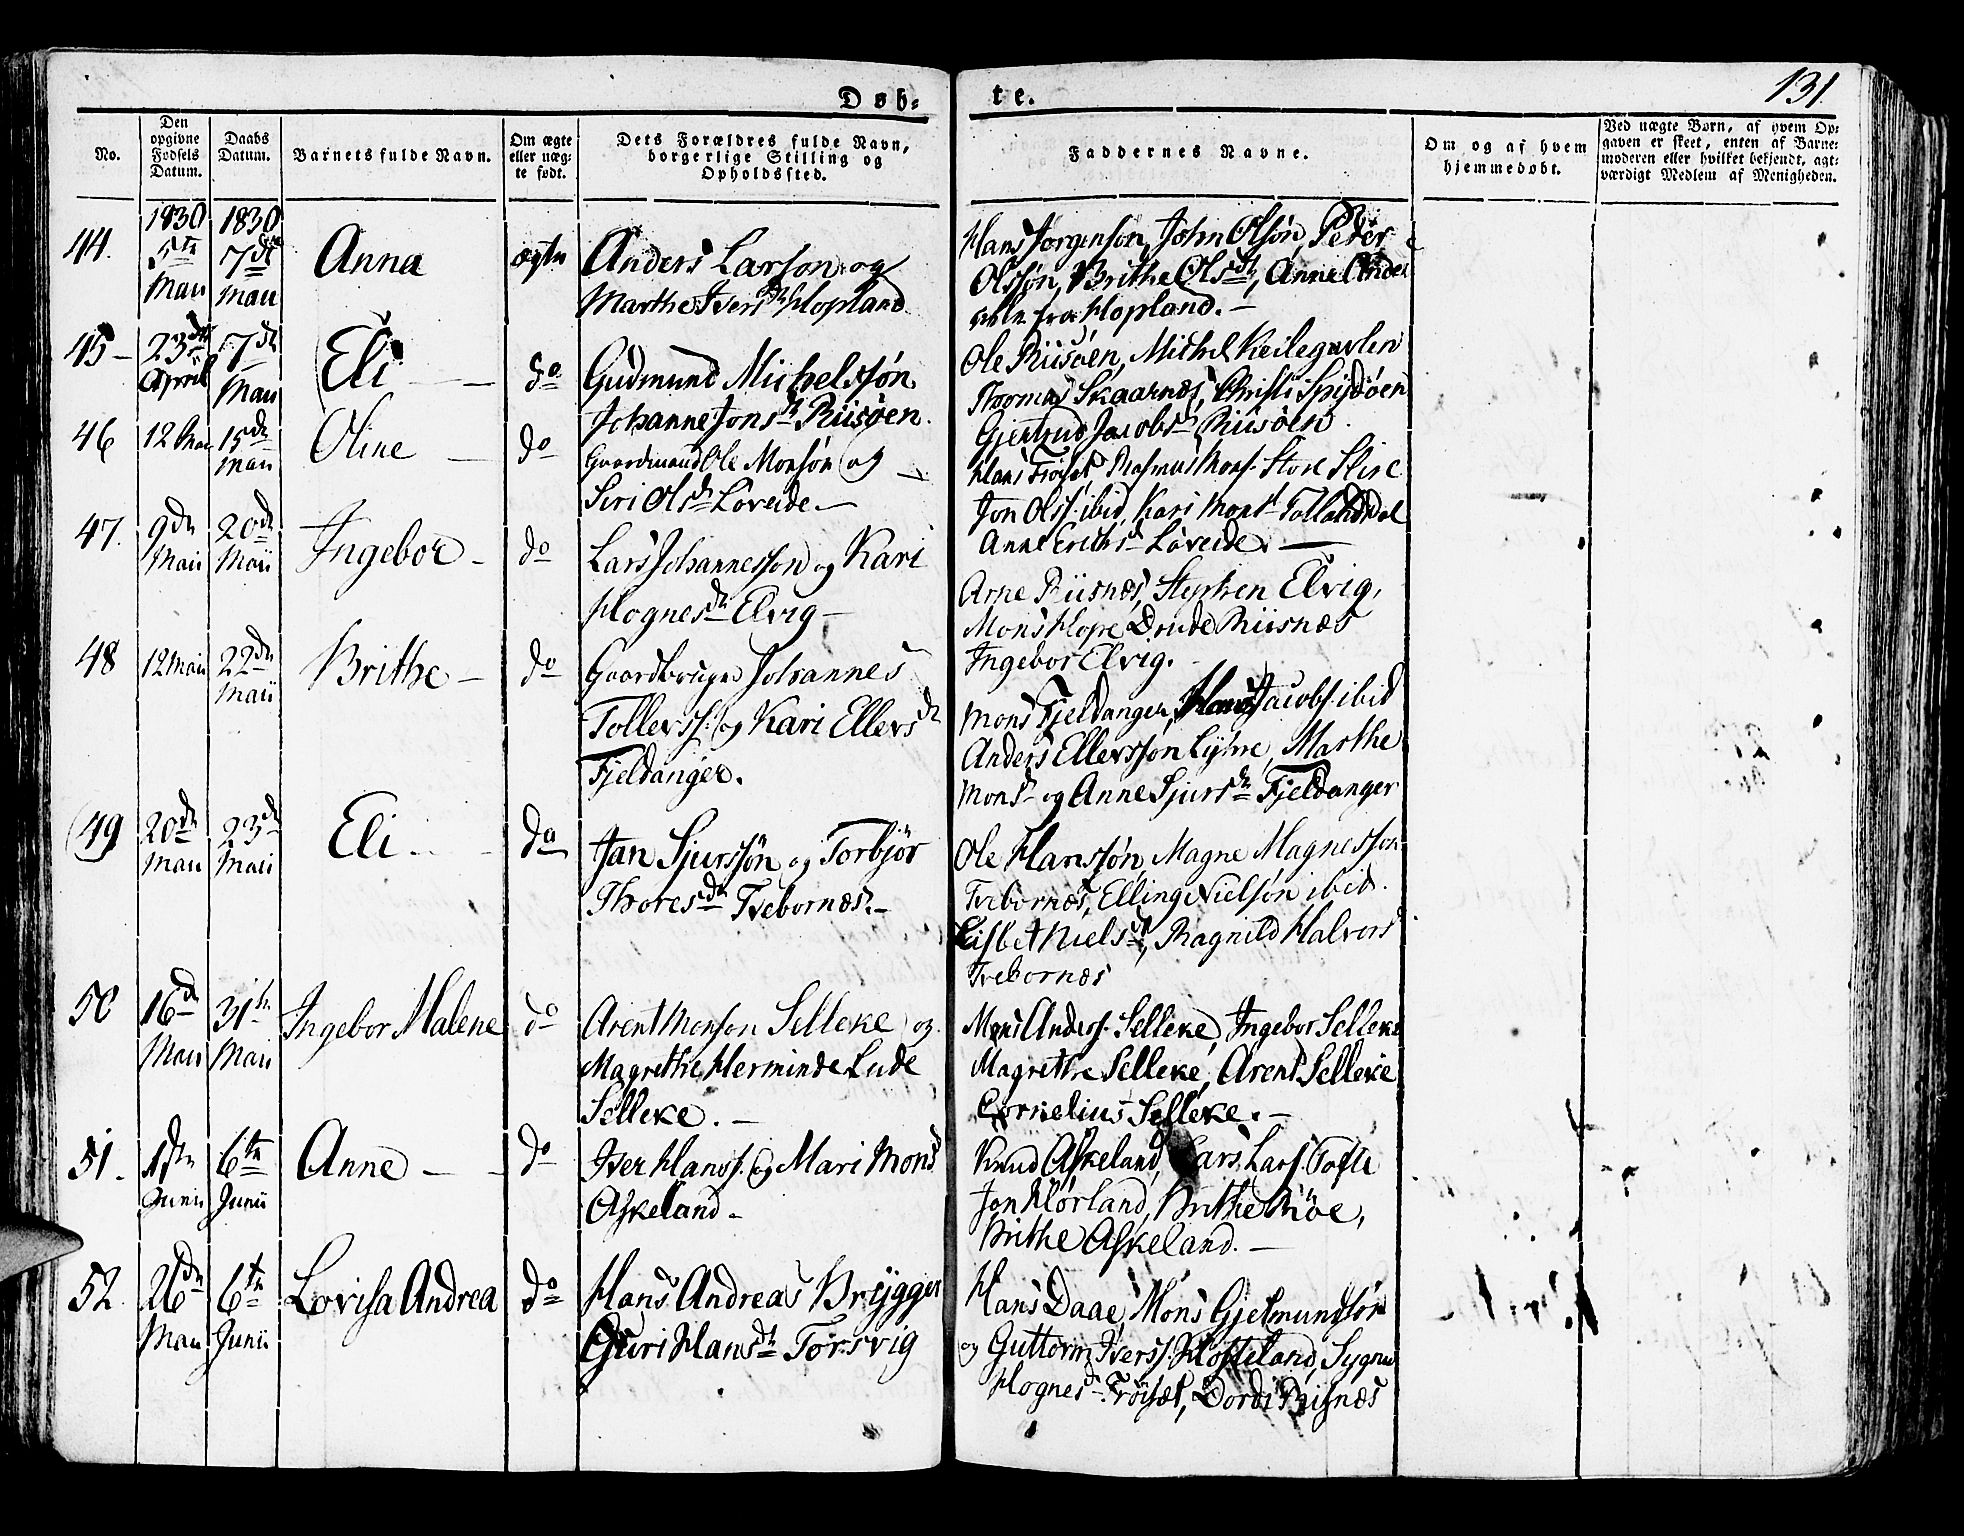 Døb-
te.
131.
No.
Den opgivne Fødsels Datum.
Daabs Datum.
Barnets fulde Navn.
Om ægte eller uægte født.
Dets Forældres fulde Navn, borgerlige Stilling og Opholdssted.
Faddernes Navne.
Om og af hvem hjemmedøbt.
Ved uægte Børn, af hvem Opgaven er skeet, enten af Barnemoderen eller hvilket bekjendt, agtværdigt Medlem af Menigheden.
1830 1830
44. 5te Maii 7de Maii Anna ægte
Anders Larsøn og
Marthe Ivers dr Hopland
Hans Jørgensøn, John Olsøn, Peder
Olssøn, Brithe Olsdr, Anne
fra Hopland. –
45 – 23de April 7de Maii Eli – do
Gudmund Michelssøn
Johanne Jons dr Riisøen.
Ole Riisøen, Michel Keilegavlen
Thomas Skaarnes, Christi Spisøen
Gjertrud Jacobs dr Riisøen.
46 12 Mai 15de Maii Oline – do
Gaardmand Ole Monsøn og
Siri Ols dr Løveide –
Hans Frøset, Rasmus Mons. Store
Jon Olss. ibid, Kari Mons d Tollaksdal
Anne Erichsd Løveide. –
47. 9de Maii 20de Maii Ingebor – do
Lars Johannessøn og Kari
Hognes dr Elvig –
Arne Riisnæs, Stephen Elvig,
Mons Hope, Drude Riisnæs
Ingebor Elvig.
48 12 Maii 22de Maii Brithe – do
Gaardbruger Johannes
Tollevss. og Kari Ellers dr
Fjeldanger.
Mons Fjeldanger, Hans Jacobs. ibid
Anders Ellerssøn Lyhre, Marthe
Mons d og Anne Sjurs dr Fjeldanger
49 20de Maii 23de Maii Eli – do
Jan Sjurssøn og Torbjør
Thores dr Tvebornæs. –
Ole Hanssøn, Magne Magnessøn
Tvebornæs, Elling Nielsøn ibid.
Lisbet Niels dr, Ragnild Halvors d
Tvebornæs
50 16de Maii 31te Maii Ingebor Malene do
Arent Monsøn Selleke og
Magrethe Herminde Lude
Selleke. –
Mons Anders. Selleke, Ingebor Selleke
Magrethe Selleke, Arent Selleke
Cornelius Selleke. –
51. 1ste Junii 6te Junii Anne – do
Iver Hanss. og Mari Mons d
Askeland –
Knud Askeland, Lars Larss. Tofte
Jon Hørland, Brithe Röe,
Brithe Askeland. –
52. 26de Maii 6te Junii Lovisa Andrea do
Hans Andreas Brygger
Guri Hans dr Torsvig
Hans Daae, Mons Gjelmundsøn
og Guttorm Iverss. Hofteland, Sygne
Hognes d Frøiset, Dorde Risnæs